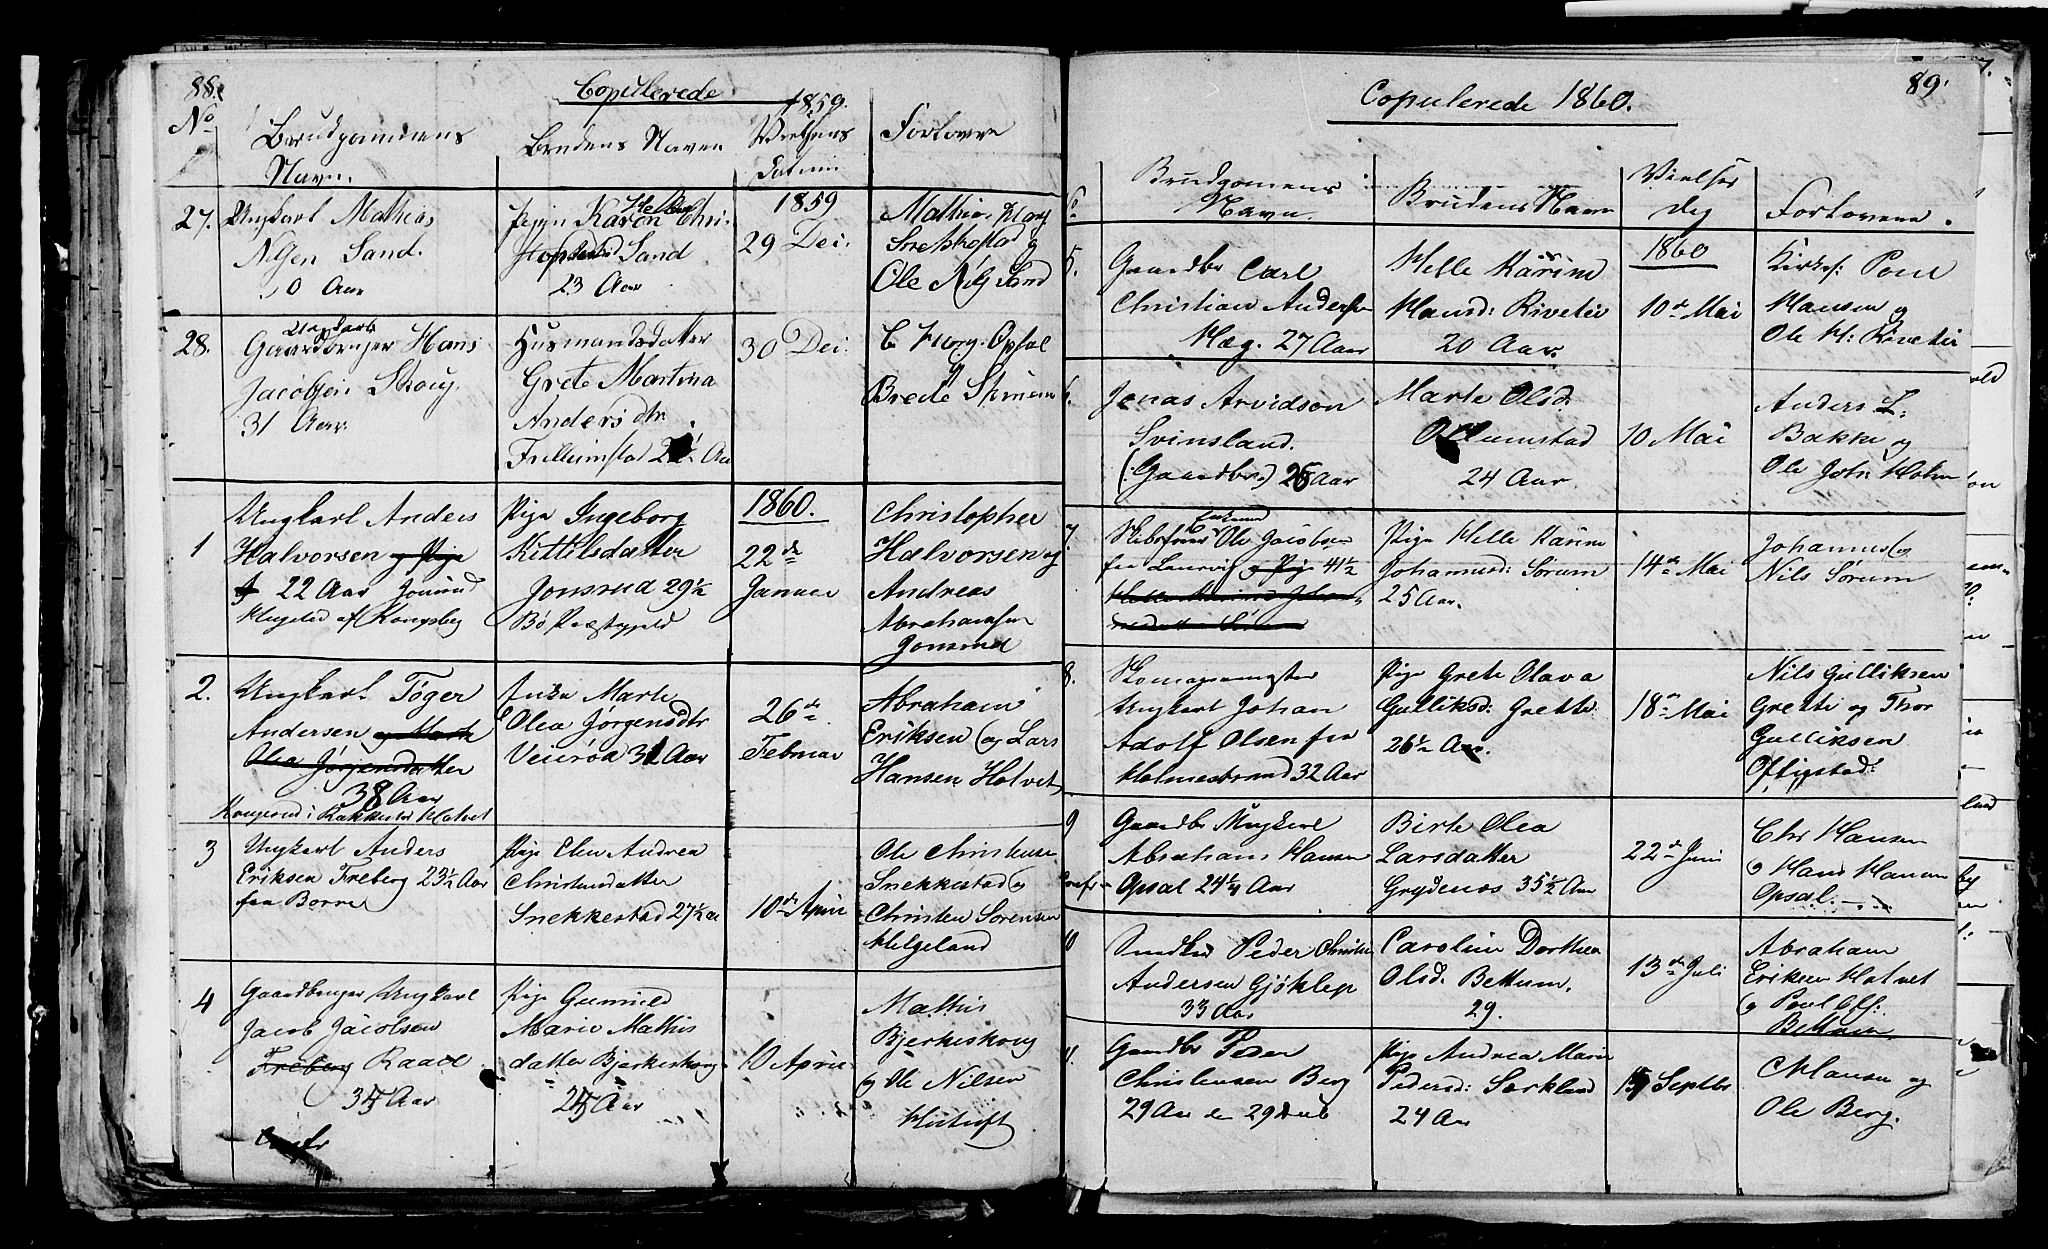 88.
Copulerede
1859.
No
Brudgommens
Navn.
Brudens Navn
Vielsens
Datum
Forlovere
27. Ungkarl Mathias
Nilsen Sand.
0 Aar
Pige Karen Helle Chri-
stophersd Sand
23 Aar
1859
29 Dec.
Mathias
Snekkestad og
Ole Nils Sand
28.
Ungkarl
Gaardbruger Hans
Jacobsen Skoug.
31 Aar
Husmandsdatter
Grete Martina
Anders dtr.
30 Dec.
Opsal
og
Brede
1
Ungkarl Anders
Halvorsen og Pige
22 Aar Jonsrud
af Kongsberg
Pige Ingeborg
Kittilsdatter
Jonsrud 29 1/2
Bø Præstegjeld
1860.
22de
Januar
Christopher
Halvorsen og
Andreas
Abrahamsen
Jonsrud
2.
Ungkarl Tøger
Andersen og Marte
Olea Jørgensdatter
38 Aar
i Hotvet
Marte
Olea Jørgensdtr
Veierød 31 Aar
26de
Februar
Abraham
Eriksen og Lars
Hansen Hotvet
3
Ungkarl Anders
Eriksen Freberg 23 1/2 Aar
fra Borre
Pige Elen Andrea
Christensdatter
Snekkestad 27 1/2 Aar
10de April
Ole Christensen
Snekkestad og
Christen Sørensen
Helgeland
4
Gaardbruger Ungkarl
Jacob Jacobsen
Freberg Raael
35 Aar
Pige Gunnild
Marie Mathis
datter Bjerkeskoug
25 Aar
10 April
Mathis
Bjerkeskoug
og Ole Nilsen
89.
Copulerede 1860.
Brudgomens
Navn.
Brudens Navn
Vielses
dag
Forlovere.
5.
Gaardbr Carl
Christian Andersen
Hæg. 27 Aar
Helle Karine
Hansd: Rivetir
20 Aar.
1860
10de Mai
Kirkes: Poul
Hansen og
Ole H: Rivetir
6.
Jonas Arvidson
Svinsland.
(Gaardbr.) 26 Aar
Marte Olsd.
24 Aar
10 Mai
Anders L:
Bakke og
Ole Joh: Holm
7.
Ole Jacobsen
fra Laurvig og Pige 41 1/2
Pige Helle Karine
Johannesd: Sørum
25 Aar.
14de Mai
Johannes og
Nils Sørum
8.
Skomagermester
Ungkarl Johan
Adolf Olsen fra
Holmestrand 32 Aar
Pige Grete Olava
Gulliksd: Grette
26 1/2 Aar.
18de Mai
Nils Gulliksen
Grette og Thor
Gulliksen
Oftigstad:
9
Gaardbr Ungkarl
Abraham Hansen
Opsal 24 1/4 Aar
Birte Olea
Larsdatter
Grydenos 35 1/2 Aar
22de Juni
Chr Hansen
og Hans Hansen
Opsal.
10
Peder Christian
Andersen Gjøklep
33 Aar
Caroline Dorthea
Olsd. Bettum.
29.
13de Juli
Abraham
Eriksen Hotvet
og Poul Ols:
Bettum
11.
Gaardbr Peder
Christensen Berg
29 Aar
Pige Andrea Marie
Pedersd: Sørklend
24 Aar
Septbr
C Hansen og
Ole Berg.